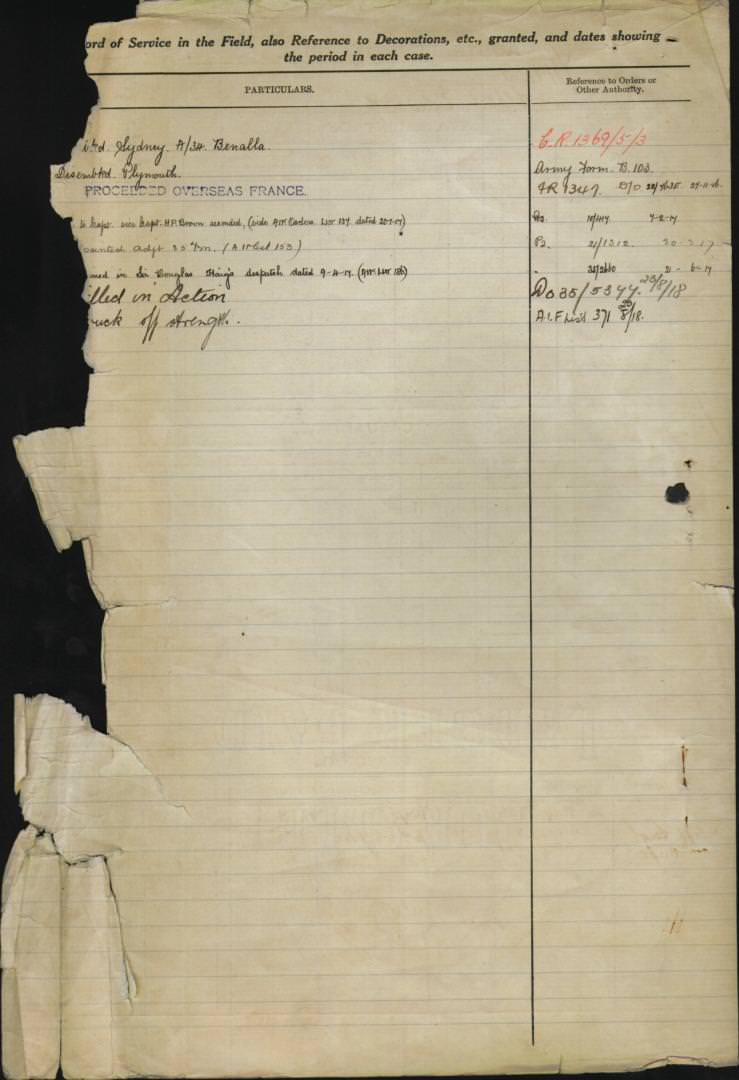 ord of Service in the Field, also Reference to Decorations, etc., granted, and dates showing
the period in each case.
PARTICULARS.
Reference to Orders or
Other Authority.
Sydney A/34 Benalla.
C.R. 1369/5/3
Disembkd. Plymouth.
Army Form B. 103
PROCEEDED OVERSEAS FRANCE.
FR 1347
to Capt. vice Capt. H.P. Brown seconded, (vide A.W. Orders List 137 dated 20-1-17)
Do. 10/417 7-2-17
ointed Adjt 33rd Bn. (A.W. List 153)
Do. 21/1312 20-3-17
in Sir Douglas Haig's despatch dated 9-4-17. (A.W. List 186)
21-6-17
illed in Action
Do 35/5344 23/8/18
ruck off strength.
A.I.F List 371 8/18.